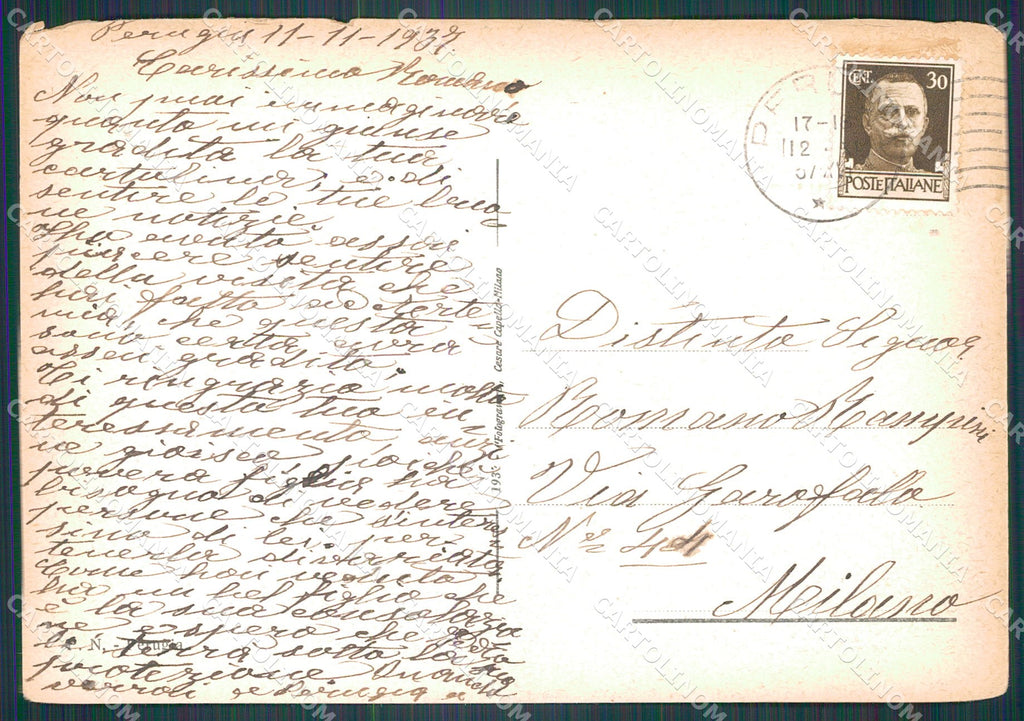 Perugia 11-11-1937
Carissimo Romano
Non puoi immaginare
quanto mi giunse
gradita la tua
cartolina, e di
sentire le tue buo
ne notizie
Ho avuto assai
piacere sentire
della visita che
hai fatto
mia, che questa
sono certa avrà
assai gradito,
Ti ringrazio molto
di questo tuo in
teressamento, anzi
ne gioisco
povera figlia ha
bisogno di vedere
persone che s'interes
sino di lei per
tenerla
Come hai veduto
ha un bel figlio che
è la sua consolazio
ne e spero che
terrà sotto la sua
protezione
verrai a Perugia
N. - Perugia
193 Fotogravure Cesare Capello-Milano
CENT. 30
POSTE ITALIANE
PERU
17-1
12
37 X
Distinto Signor
Romano
Via Garofalo
Nr 44
Milano
CARTOLINOMANIA